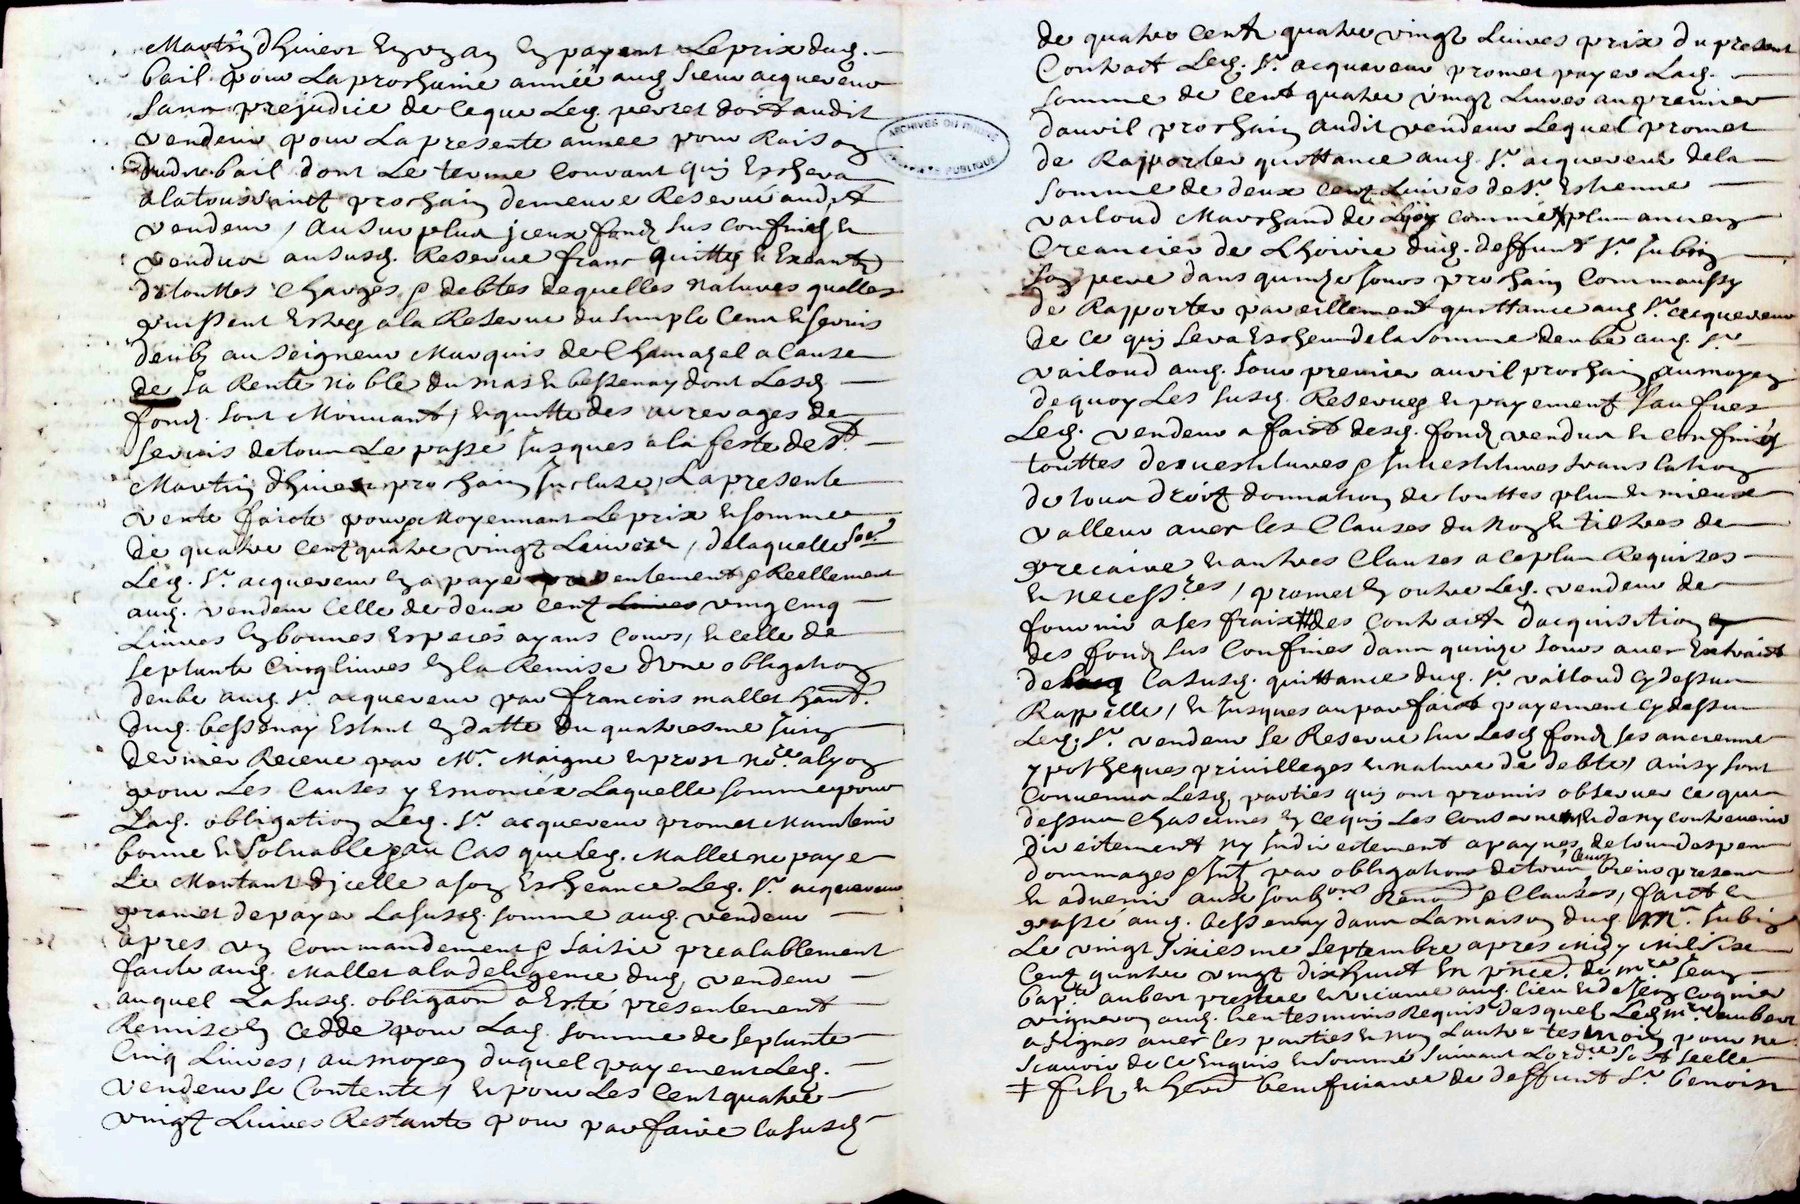 Martin d'hivert en un an en payant le prix dud.
bail pour la prochaine année aud. sieur acquereur
sans prejudice de ce que led. perret doit audit
vendeur pour la presente annee pour raison
dudit bail dont le terme courant qui eschera
a la toussainct prochain demeure reservé audit
vendeur, au surplus iceux fondz sus confinés et
vendus au susd. reserve franc quittes et exantz
de touttes charges et debtes de quelles natures quelles
puissent estres a la reserve du simple cens et servis
deubz au seigneur Marquis de Chamazel a cause
de sa rente noble du mas et bessenay dont lesd.
fondz sont mouvant, et quitte des arrerages de
servis de tous le passé jusques a la feste de St.
Martin d'hivert prochain incluse, la presente
vente faicte pour et moyennant le prix et somme
de quatre centz quatre vingtz livres, de laquelle
led. Sr. acquereur en a payé presentement et reellement
aud. vendeur celle de deux centz vingt cinq
livres en bonnes especes ayans cours, et celle de
septante cinq livres en la remise d'une obligation
deube aud. Sr. acquereur par francois mallet hant.
dud. bessenay estant en datte du quatriesme juin
dernier receue par Me. Maigne et prost nore. a lyon
pour les causes y enoncées laquelle somme pour
lad. obligation led. Sr. acquereur promet maintenir
bonne et solvable et au cas que led. Mallet ne paye
le montant d'icelle a son escheance led. Sr. acquereur
promet de payer la susd. somme aud. vendeur
apres un commandement et saisie prealablement
faicte aud. Mallet a la deligence dud. vendeur
auquel la susd. obligaon a esté presentement
remise et cedde pour lad. somme de septante
cinq livres, au moyen duquel payement led.
vendeur se contente, et pour les cent quatre
vingtz livres restante pour parfaire la susd.
de quatre centz quatre vingtz livres prix du present
contract led. Sr. acquereur promet payer lad.
somme de cent quatre vingtz livres au premier
d'avril prochain audit vendeur lequel promet
de rapporter quittance aud. Sr. acquereur de la
somme de deux centz livres de Sr. Estienne
vailoud marchand de lyon comme plus ancien
creancier de l'hoirie dud. deffunt Sr. Subin
son pere dans quinze jours prochain comme aussy
de rapporter pareillement quittance aud. Sr. acquereur
de ce qui sera escheu de la somme deube aud. Sr.
vailoud aud. jour premier avril prochain au moyen
de quoy les susd. reserves et payement sauf ues
led. vendeur a faict desd. fondz vendus et confinés
touttes desvestitures et investitures translation
de tous droictz donnation de touttes plus et mieux
valleur avec les clauses du nom et tiltres de
precaire et autres clauses a ce plus requises
et necessres, promet en outre led. vendeur de
fournir a ses fraix des contractz d'acquisition
des fondz sus confines dans quinze jours avec extraict
de la susd. quittance dud. Sr. vailoud cy dessus
rappellé, et jusques au parfaict payement cy dessus
led. Sr. vendeur se reserve sur lesd. fondz ses anciennes
ypotheques privilleges et nature de debte, ainsy sont
convenus lesd. parties qui ont promis observer ce que
dessus chascunes en ce qui les conserne et de ny contrevenir
directement ny indirectement a paynes de tous despens
dommages et Int. par obligations de tous leurs biens presens
et advenir aux soubzons renon et clauses, faict et
passé aud. bessenay dans la maison dud. Mr. Subin
le vingt sixiesme septembre apres midy mil six
centz quatre vingtz dix huict en pnce. de mre Jean
bapte. aubert prestre et vicaire aud. lieu et de Jean coquier
vigneron aud. lieu tesmoins requis desquelz led. mre aubert
a signés avec les parties et non l'autre tesmoin pour ne
scavoir de ce enquis et sommé suivant l'ordce soit scellé
‡ filz et herd. beneficiaire de deffunt Sr. benoist
ARCHIVES DU RHONE